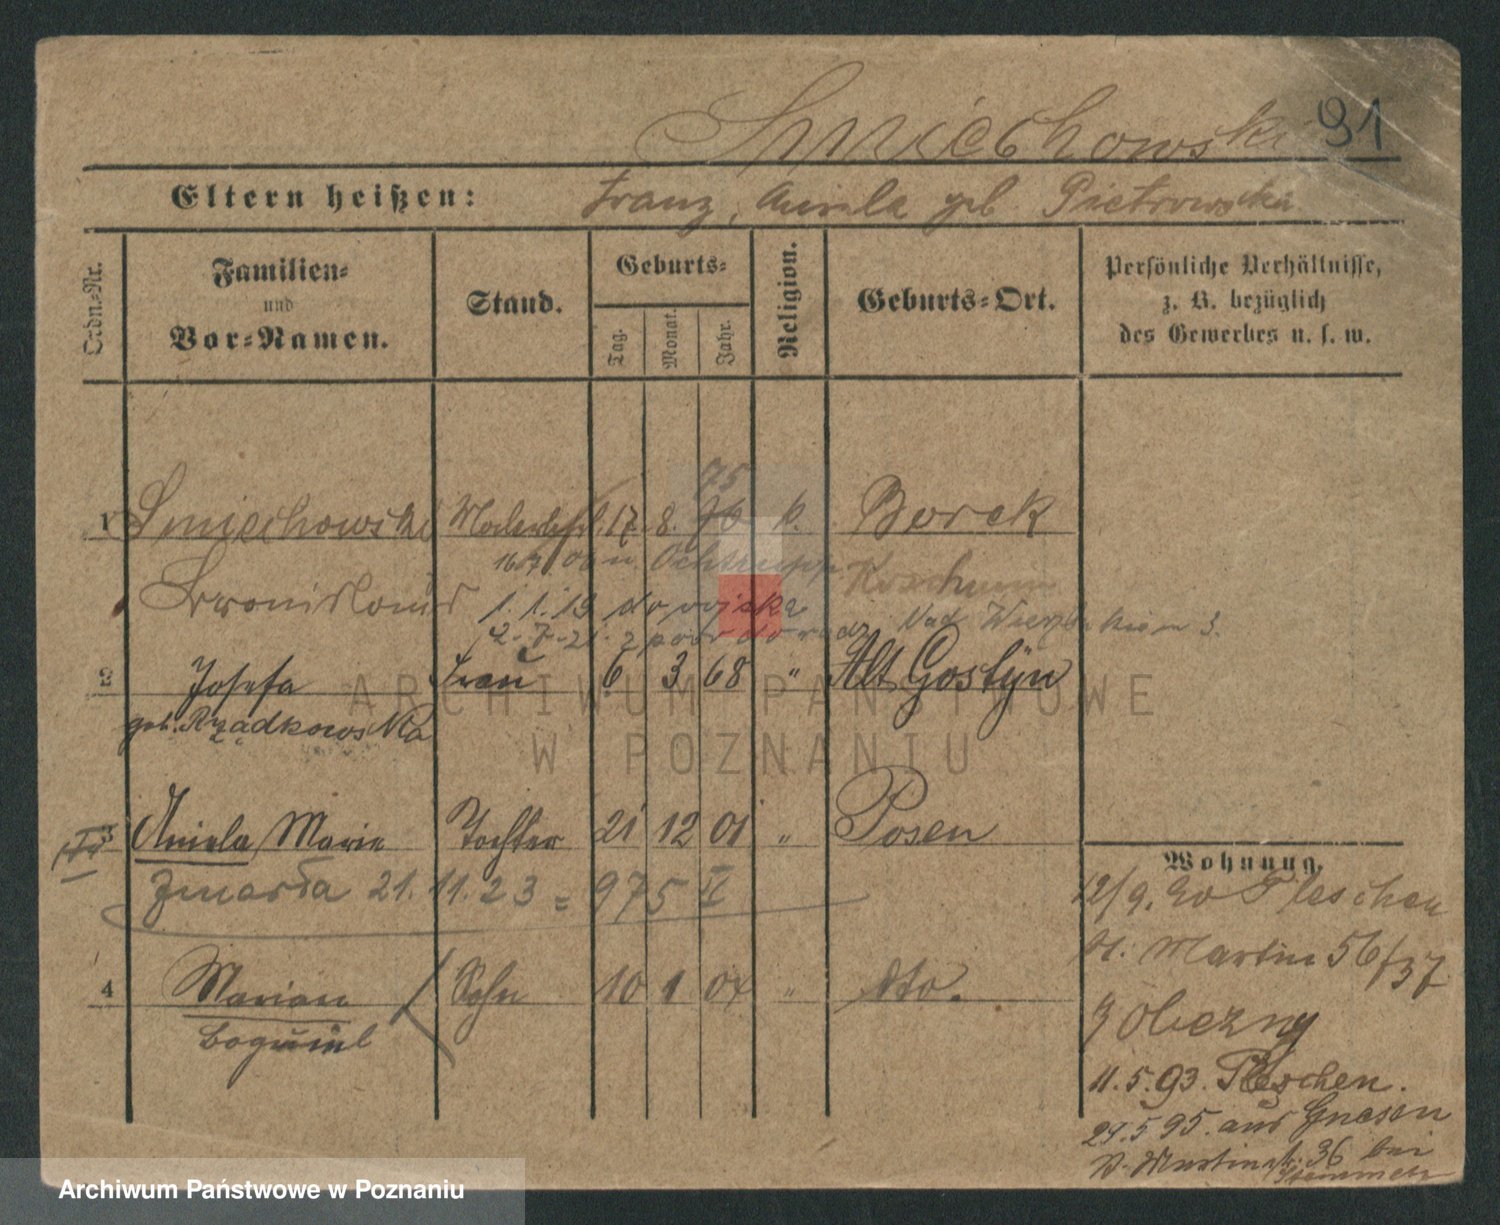 Smiechowski 91
Eltern heißen: Franz, Aniela geb. Pietrowska
Ordn.-Nr.
Familien-
und
Vor-Namen.
Stand.
Geburts-
Tag.
Monat.
Jahr.
Religion.
Geburts-Ort.
Persönliche Verhältnisse,
z. B. bezüglich
des Gewerbes u. s. w.
75
1 Smiechowski 17. 8. 76 k. Borek
16.7. Ochtrupp Koschmin
Bronislaus 1. 1. 19 do wojska
2. 7. 21. z powr. do 3.
2 Josefa Frau 6 3 68 " Alt Gostÿn
geb. Rządkowska
ARCHIWUM PAŃSTWOWE
W POZNANIU
3 Aniela Marie Tochter 21 12 01 " Posen
Zmarła 21. 11. 23 = 975 II
4 Marian Sohn 10 1 04 " dto.
Bogumil
Wohnung.
12/9. 90 Pleschen
St. Martin 56/37
11. 5. 93. Pleschen.
29. 5 95. aus Gnesen
St. Martinstr. 36 bei
Archiwum Państwowe w Poznaniu